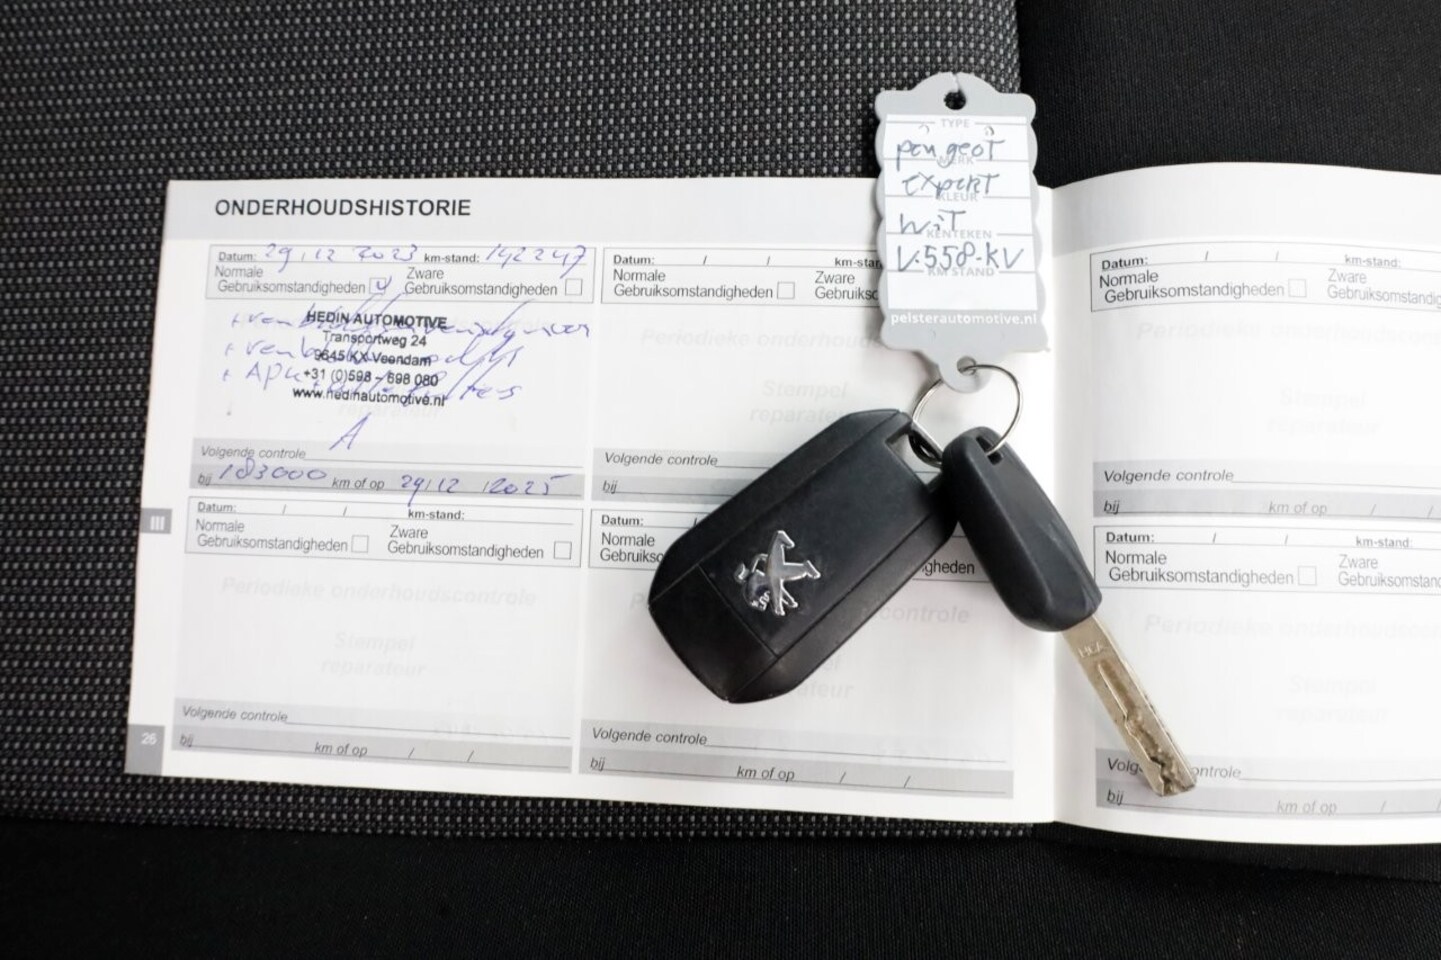 ONDERHOUDSHISTORIE
Datum: 29 / 12 2023 km-stand: 142247
Normale
Gebruiksomstandigheden
Zware
Gebruiksomstandigheden
HEDIN AUTOMOTIVE
Transportweg 24
9645 KX Veendam
+31 (0)598 - 698 080
www.hedinautomotive.nl
Volgende controle
bij 183000 km of op 29/12 /2025
Datum: / / km-stand:
Normale
Gebruiksomstandigheden
Zware
Gebruiksomstandigheden
Periodieke onderhoudscontrole
Stempel
reparateur
Volgende controle
bij km of op / /
26
III
Datum: / / km-stan
Normale
Gebruiksomstandigheden
Zware
Gebruiks
Stempel
reparateur
Volgende controle
bij
Datum: /
Normale
Gebruikso
gheden
controle
ateur
Volgende controle
bij km of op / /
TYPE
peugeot
MERK
expert
KLEUR
wit
KENTEKEN
V-558-KV
KM STAND
pelsterautomotive.nl
HCA
Datum: / / km-stand:
Normale
Gebruiksomstandigheden
Zware
Gebruiksomstandig
Periodieke onderhoudscon
Stempel
reparateur
Volgende controle
bij km of op / /
Datum: / / km-stand:
Normale
Gebruiksomstandigheden
Zware
Gebruiksomstand
Periodieke onderhoudscon
Stempel
reparateur
Volg ontrole
bij km of op / /